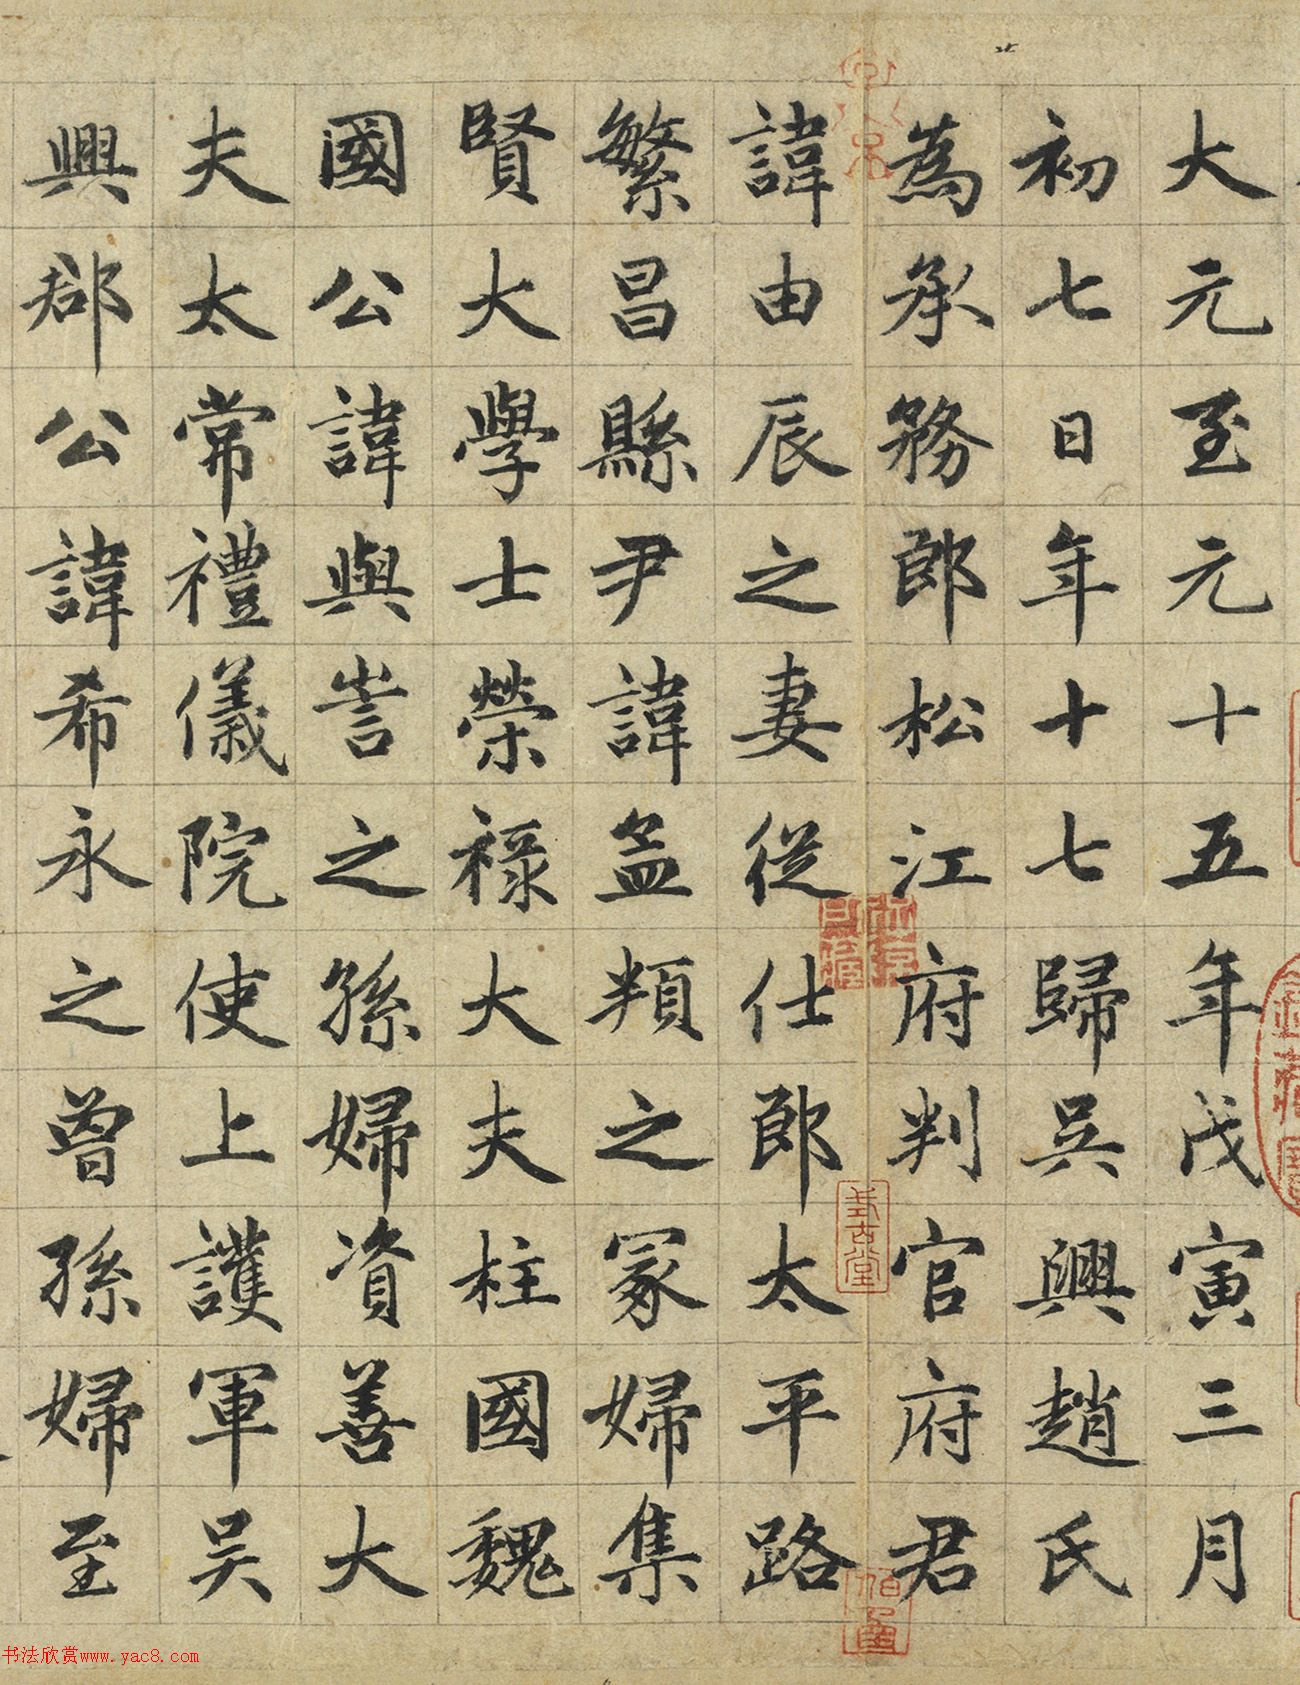 大元至元十五年戊寅三月
初七日年十七歸吳興趙氏
為承務郎松江府判官府君
諱由辰之妻從仕郎太平路
繁昌縣尹諱孟頖之冢婦集
賢大學士榮祿大夫柱國魏
國公諱與訔之孫婦資善大
夫太常禮儀院使上護軍吳
興郡公諱希永之曾孫婦至
式古堂
书法欣赏www.yac8.com